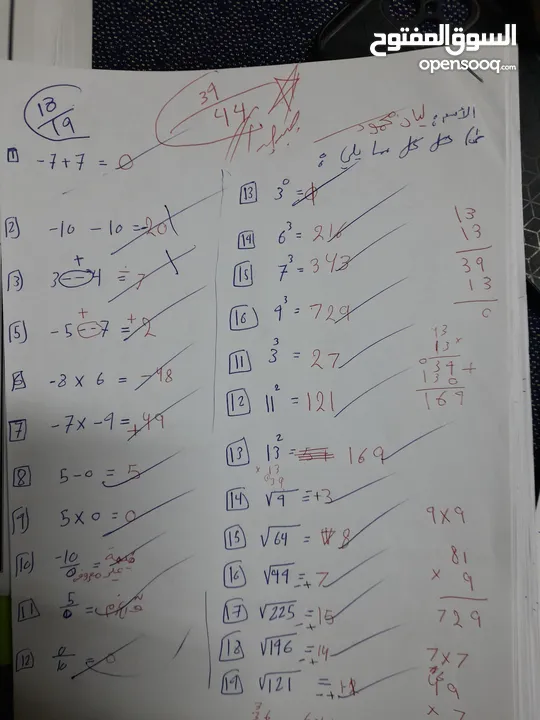 السوق المفتوح
opensooq.com
18/19
39/44
الاسم:
كل مما يلي:
1 -7+7 = 0
2 -10 - 10 = -20
3 3 - - 4 = 7
+
5 -5 - - 7 = +2
+
6 -8 x 6 = -48
7 -7 x -9 = +49
8 5-0 = 5
9 5 x 0 = 0
10 -10/0 =
11 5/0 =
12 0/10 = 0
13 3⁰ = 1
14 6³ = 216
15 7³ = 343
16 9³ = 729
11 3³ = 27
12 11² = 121
13 13² = 169
14 √9 = +3
15 √64 = 8
16 √49 = +7
17 √225 = +15
18 √196 = +14
19 √121 =
13
13
39
13
0
13
13 x
039 +
130
169
x 13
39
9x9
81
x 9
729
7x7
49
x 7